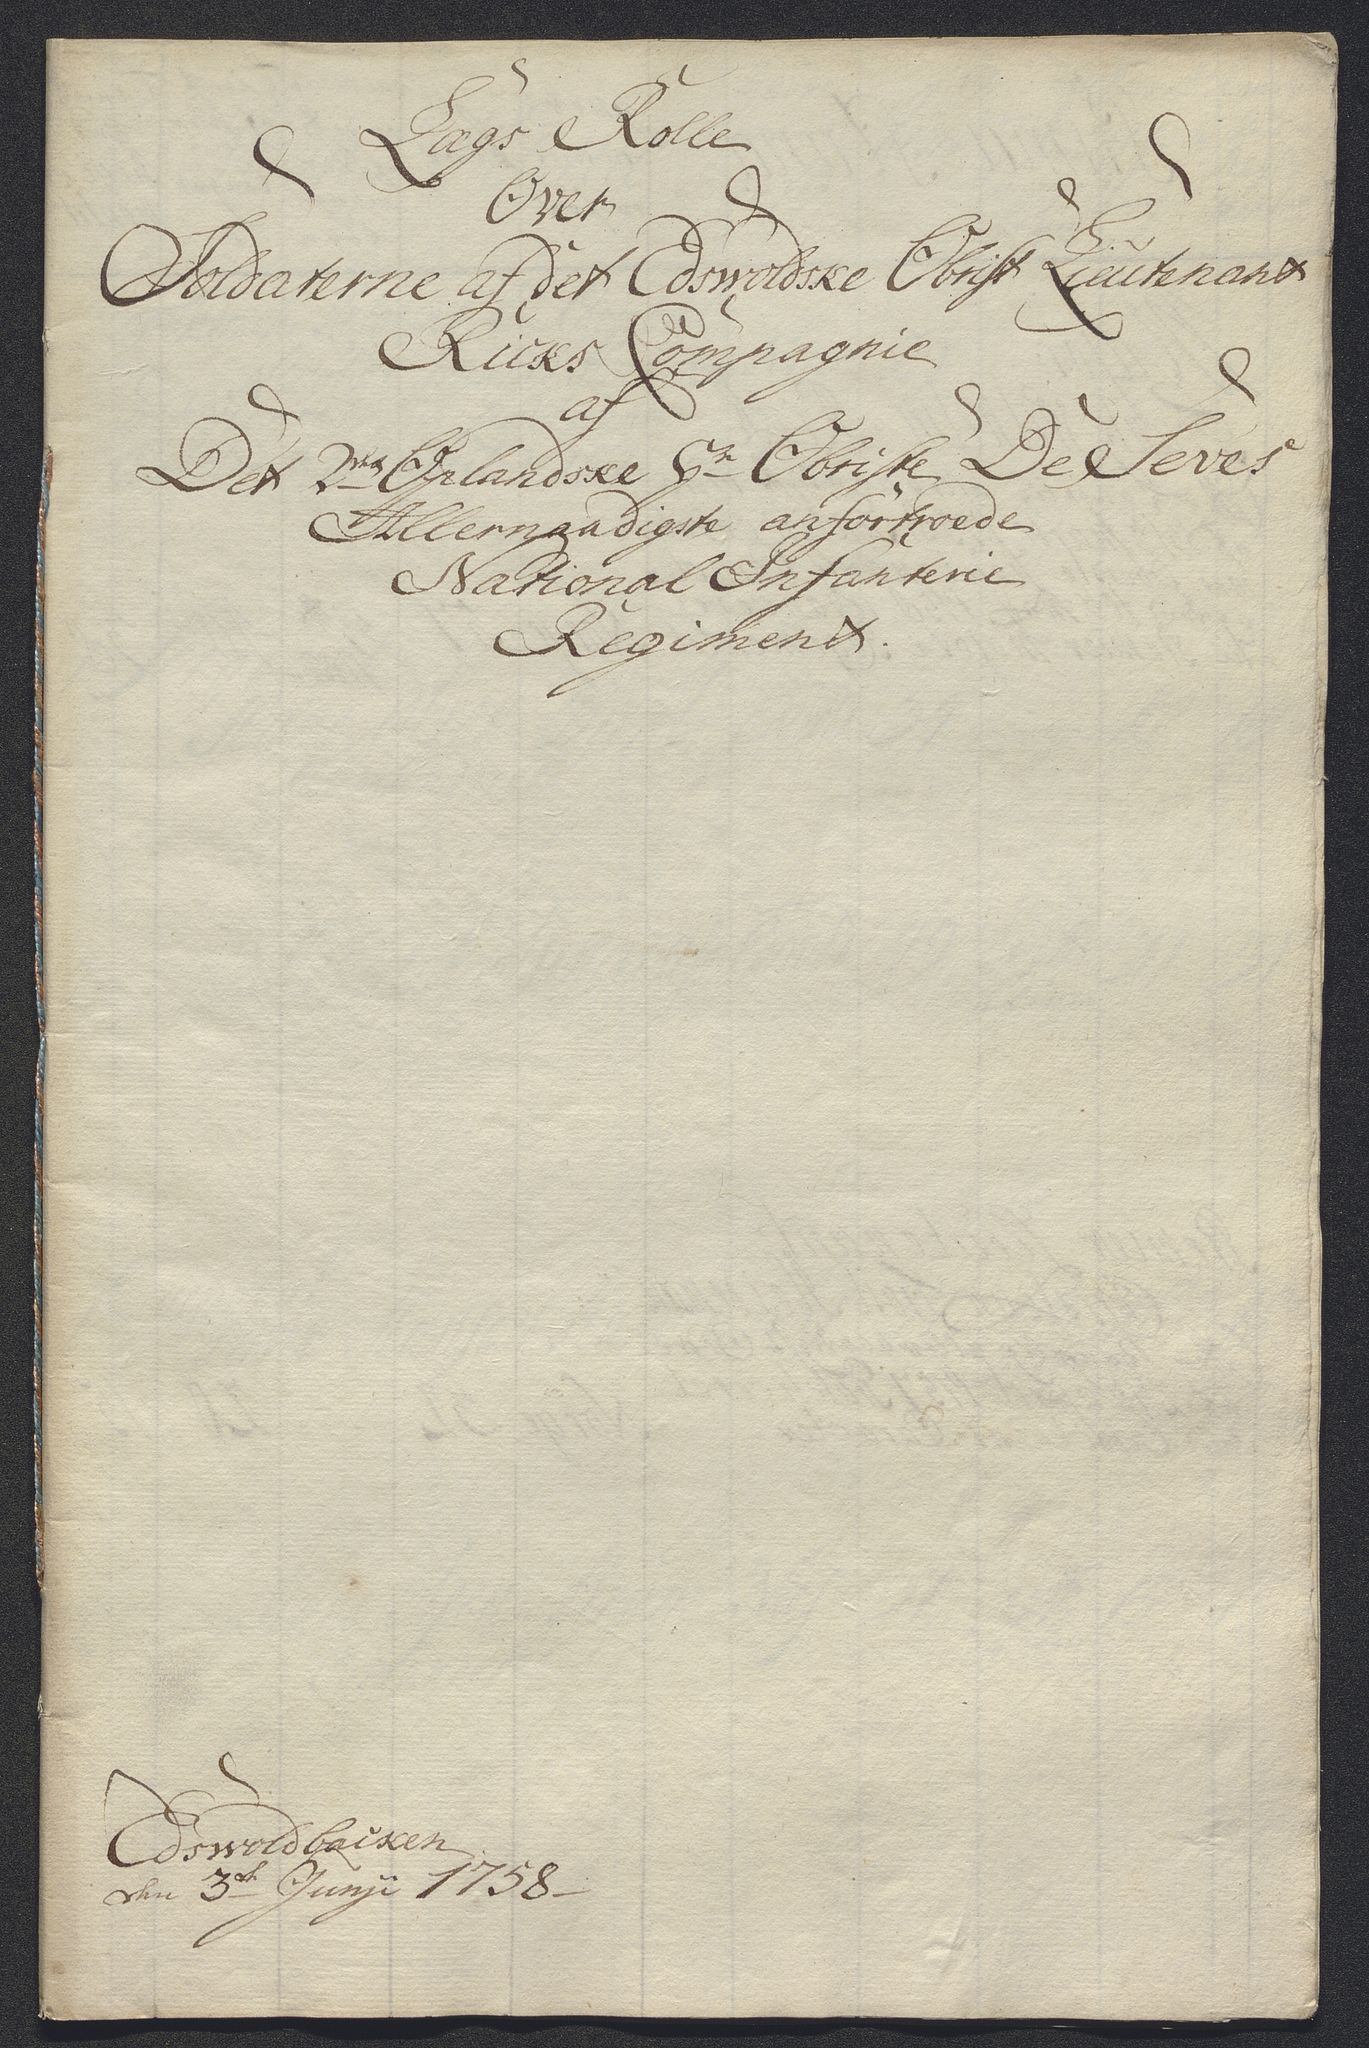 Lægs Rolle
Over
Soldaterne af det Edswoldske Obrist Lieutenant
Rücks Compagnie
af
Det 2det Oplandske Hr Obriste De Seves
Allernaadigste anfortroede
National Infanterie
Regiment.
Edswoldbacken
den 3de Junji 1758